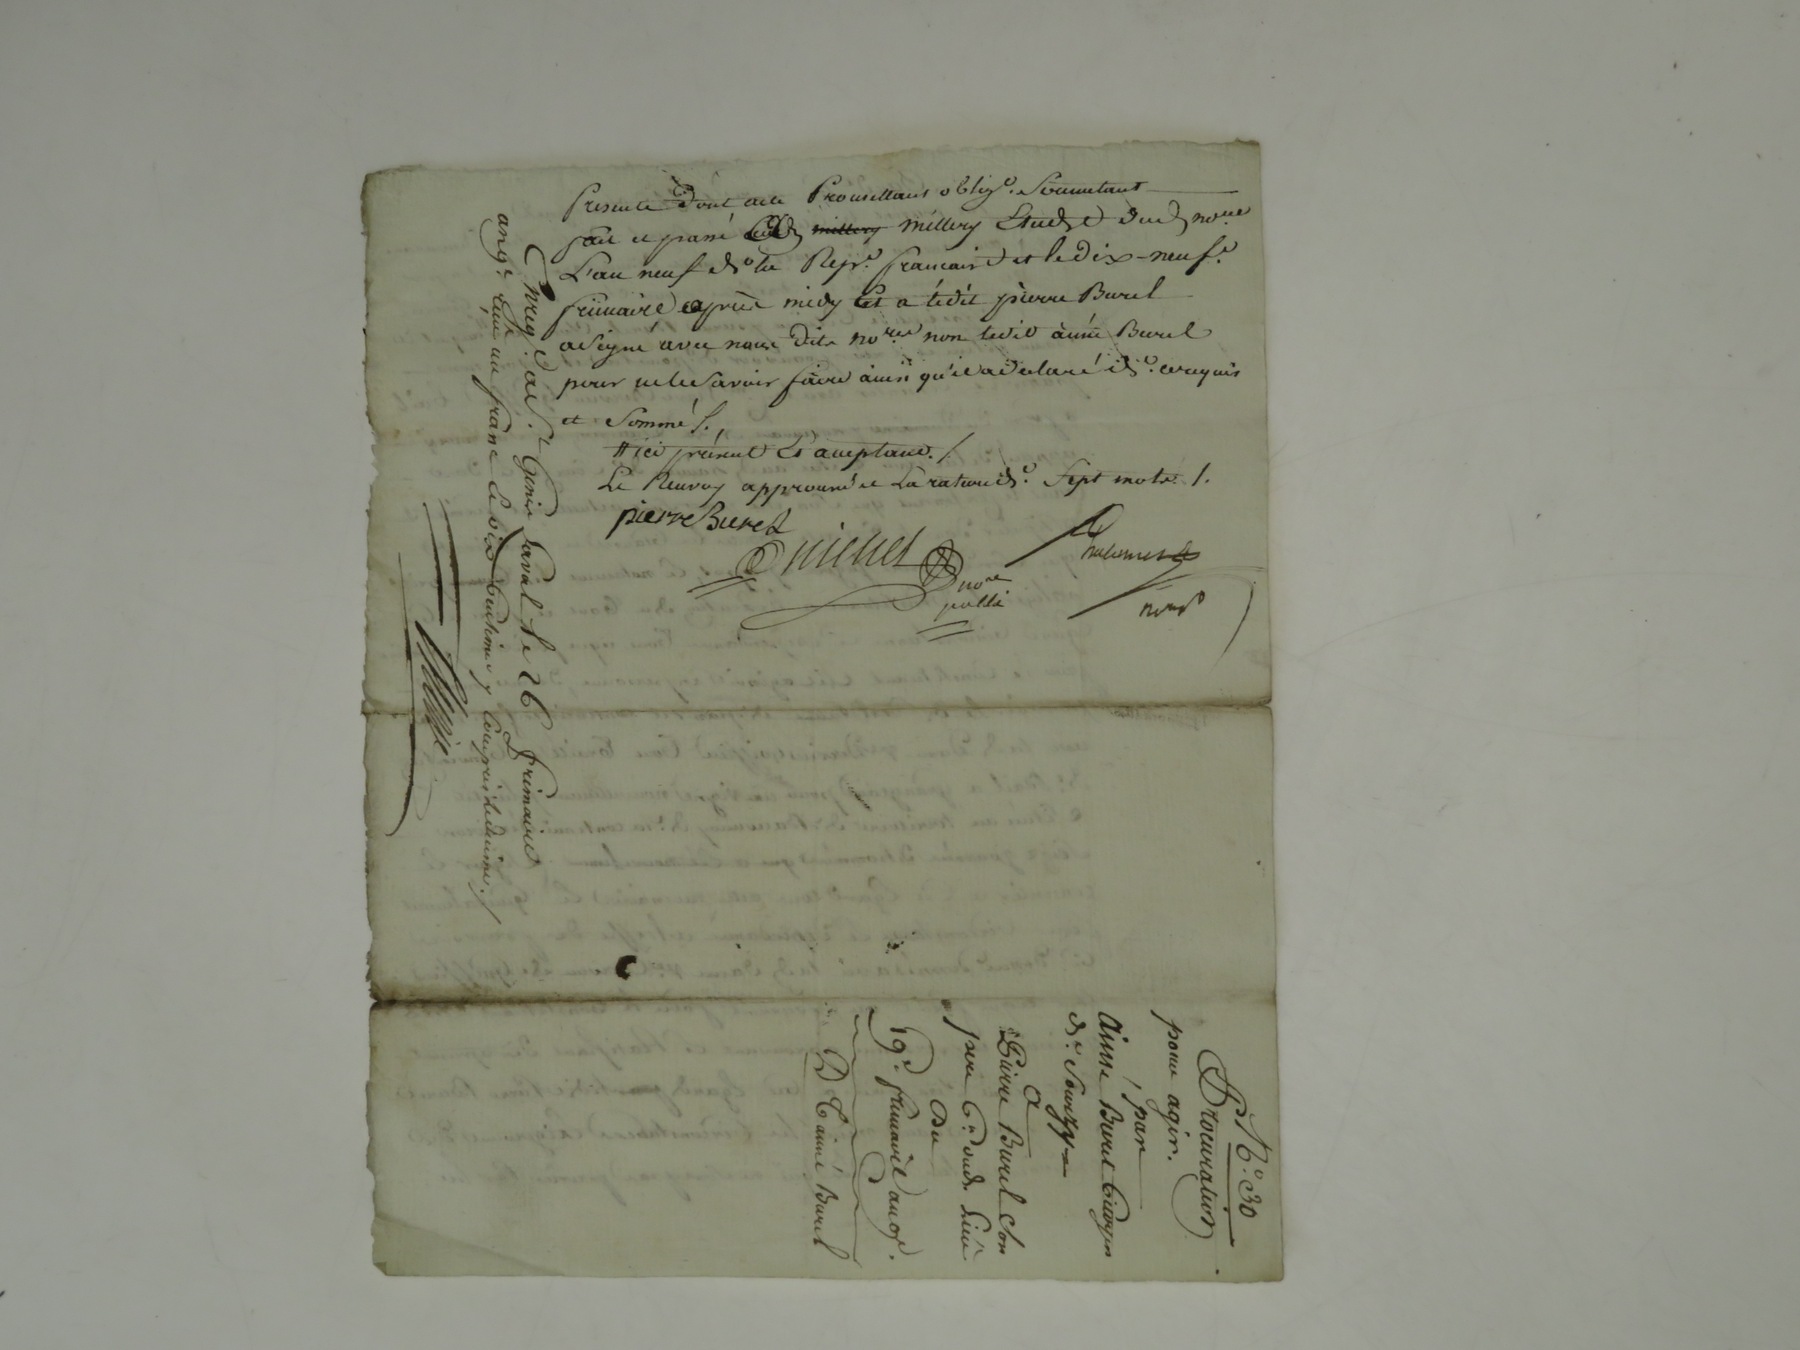 presente dont acte Promettant oblig.e Soumetant
fait et passé millery millery Etude dud no.re
L'an neuf de la Rep.e francaise et le dix-neuf.e
frimaire après midy Et a ledit pierre Burel
a Signé avec nous dits no.res non ledit aimé Burel
pour ne le Savoir faire ainsi qu'il a declaré de ce requis
et Sommé /.
# ici présent Et acceptant. /
Le Renvoy approuvé et La rature de Sept mots. /.
pierre Burel
no.re
public
no.re
Enreg.é a S.t Genis Laval Le 26 Frimaire
an 9.e Reçu un franc Et dix Centimes y Compris le decime /
N.o 30
Procuration
pour agir.
par
Aimé Burel Citoyen
de Sourzy
a
Pierre Burel Son
pere C.n dud. Lieu
Du
19.e frimaire an 9.e
D. C. aimé Burel